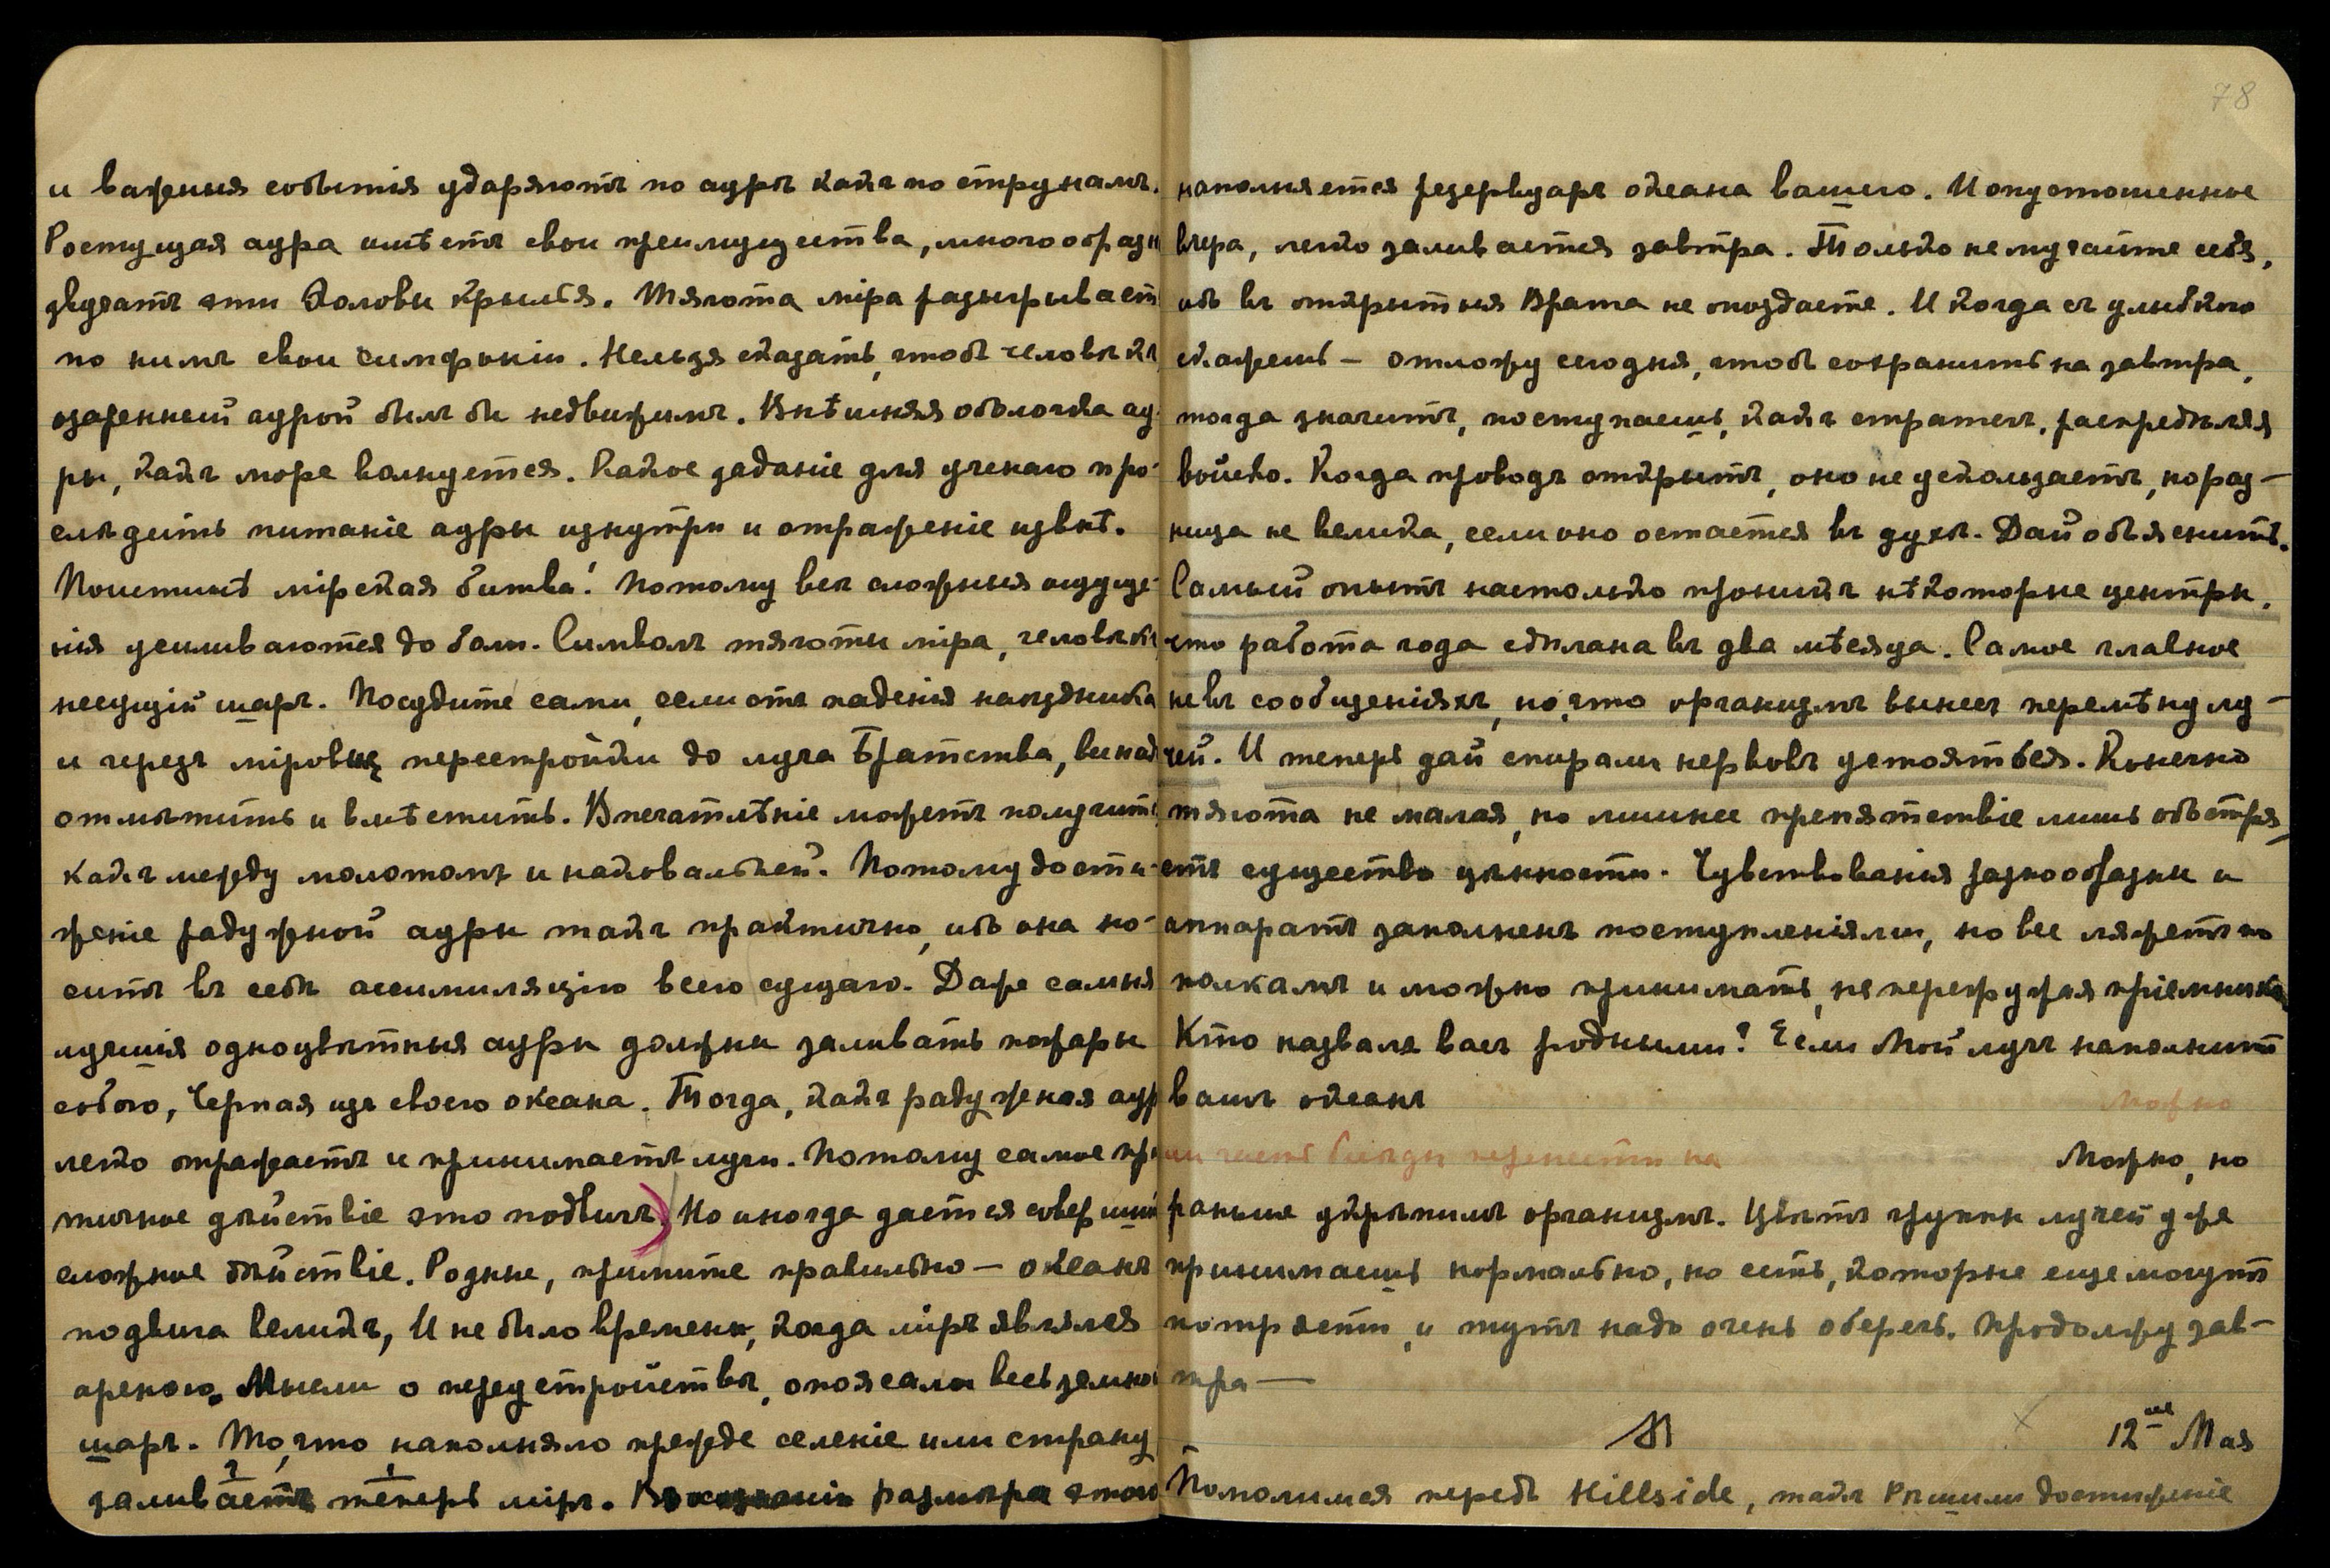 и важныя событія ударяютъ по аурѣ какъ по струнамъ.
Ростущая аура имѣетъ свои преимущества, многообразн
звучатъ эти Эоловы крылья. Тягота міра разыгрывает
по нимъ свои симфоніи. Нельзя сказать, чтобъ человѣкъ
озаренный аурой былъ бы недвижимъ. Внѣшняя оболочка ау
ры, какъ море волнуется. Какое заданіе для ученаго про-
слѣдить питаніе ауры изнутри и отраженіе извнѣ.
Поистинѣ мірская битва! Потому все сложныя ощуще-
нія усиливаются до боли. Символъ тяготы міра, человѣкъ
несущій шаръ. Посудите сами, если отъ паденія наѣздника
и черезъ міровыя перестройки до луча Братства, вы над
отмѣтить и вмѣстить. Впечатлѣніе можетъ получить,
какъ между молотомъ и наковальней. Потому дости-
женіе радужной ауры такъ практично, ибо она но-
ситъ въ себѣ ассимиляцію всего сущаго. Даже самыя
лучшія одноцвѣтныя ауры должны заливать пожары
собою, Черпая изъ своего океана. Тогда, какъ радужная аур
легко отражаетъ и принимаетъ лучи. Потому самое пр
тичное дѣйствіе это подвигъ. Но иногда дается
сложное дѣйствіе. Родные, примите правильно — океанъ
подвига великъ, И не было времени, когда міръ являлся
ареною. Мысли о переустройствѣ, опоясали весь земно
шаръ. То, что наполняло прежде селеніе или страну
2 1
заливаетъ теперь міръ. размѣра этого
78
наполняется резервуаръ океана вашего. И опустошенное
вчера, легко заливается завтра. Только не мучайте себя,
ибо въ открытыя Врата не опоздаете. И когда съ улыбкою
скажешь — отложу сегодня, чтобъ сохранить на завтра,
тогда значитъ, поступаешь, какъ стратегъ, распредѣляя
войско. Когда проводъ открытъ, оно не ускользаетъ, но раз-
ница не велика, если оно остается въ духѣ. Дай объяснить.
Самый опытъ настолько проникъ нѣкоторые центры,
что работа года сдѣлана въ два мѣсяца. Самое главное
не въ сообщеніяхъ, но, что организмъ вынесъ перемѣну лу-
чей. И теперь дай спирали нервовъ устояться. Конечно
тягота не малая, но лишнее препятствіе лишь обостря-
етъ существо цѣнности. Чувствованія разнообразны и
аппаратъ заполненъ поступленіями, но все ляжетъ по
полкамъ и можно принимать, не перегружая пріемника
Кто назвалъ васъ родными? Если Мой лучъ наполнитъ
вашъ океанъ
Можно
перенести на
Можно, но
раньше укрѣпимъ организмъ. Цвѣтъ группы лучей уже
принимаешь нормально, но есть, которые еще могутъ
потрясти, и тутъ надо очень оберечь. Продолжу зав-
тра —
12го Мая
Помолимся передъ Hillside, такъ рѣшили достиженіе